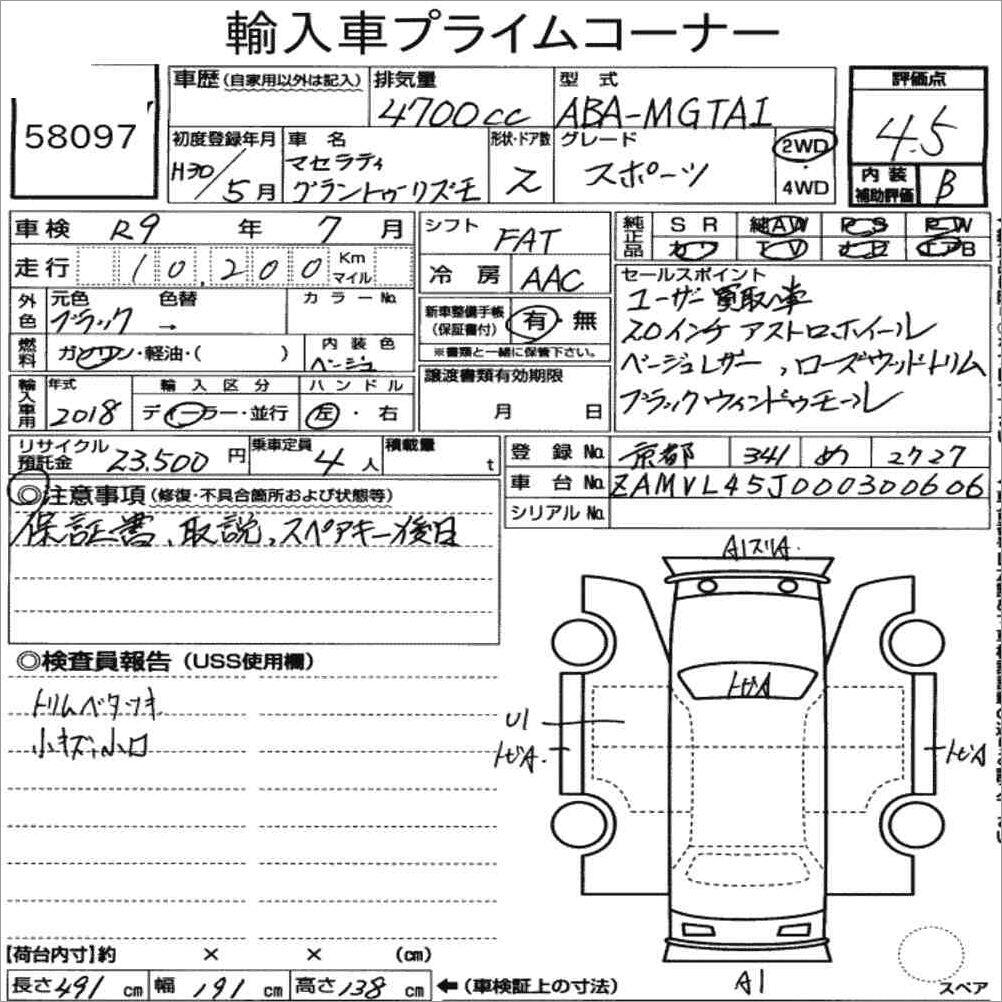 輸入車プライムコーナー
58097
車歴(自家用以外は記入) 排気量 型式 評価点
4700cc ABA-MGTA1 4.5
初度登録年月 車名 形状・ドア数 グレード 2WD・4WD
H30/5月 マセラティ グラントゥーリズモ 2 スポーツ
内装補助評価 B
車検 R9年 7月 シフト FAT
純正品 SR 純AW PS PW
カワ TV ナビ エアB
走行 10,200 Km マイル 冷房 AAC
外色 元色 色替 カラーNo.
ブラック →
新車整備手帳(保証書付) 有・無
※書類と一緒に保管下さい。
燃料 ガソリン・軽油・( ) 内装色 ベージュ
セールスポイント
ユーザー買取車
20インチアストロホイール
ベージュレザー、ローズウッドトリム
ブラックウィンドゥモール
譲渡書類有効期限
月 日
輸入車用 年式 輸入区分 ハンドル
2018 ディーラー・並行 左・右
リサイクル預託金 23,500円 乗車定員 4人 積載量 t
登録No. 京都 341 め 2727
車台No. ZAMVL45J000300606
シリアルNo.
◎注意事項(修復・不具合箇所および状態等)
保証書、取説、スペアキー後日
◎検査員報告(USS使用欄)
トリムベタつき
小キズ小凹
A1スリA.
トビA
U1
トビA.
トビA
A1
【荷台内寸】約 × × (cm)
長さ491cm 幅191cm 高さ138cm ←(車検証上の寸法)
スペア